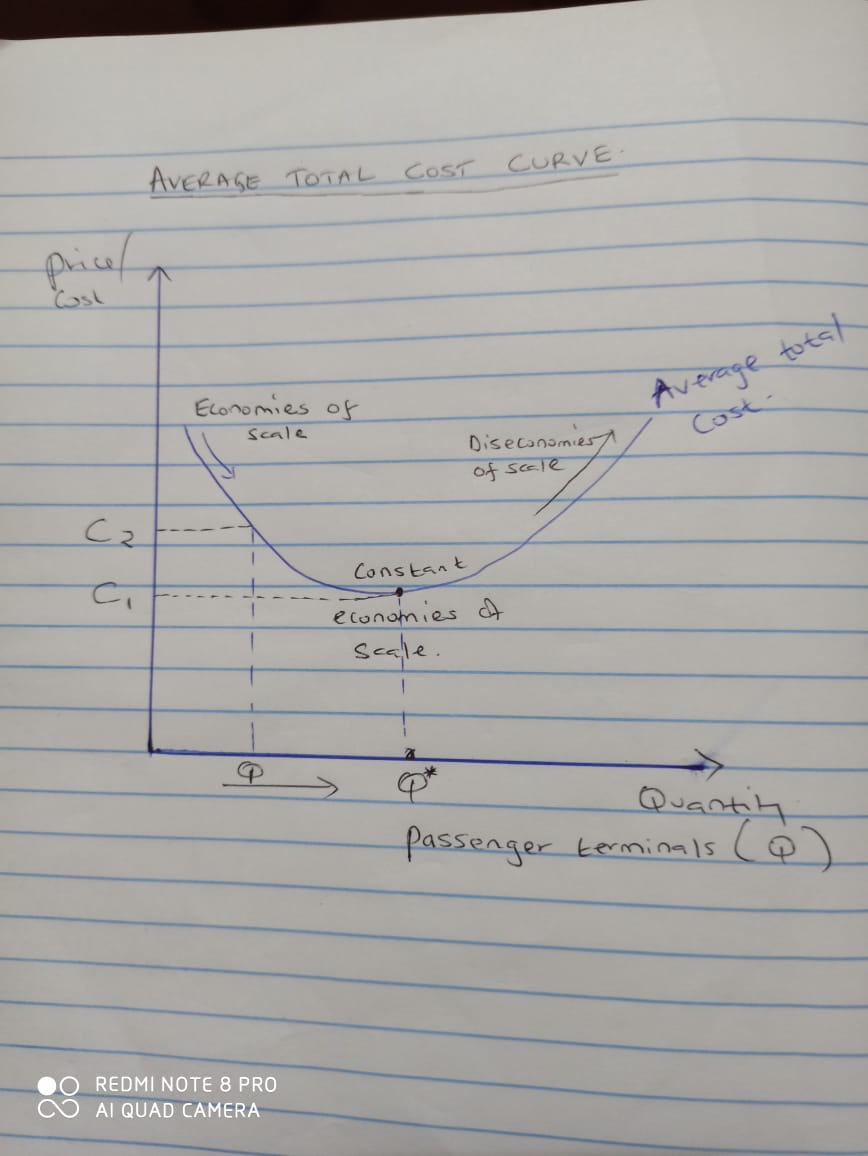 AVERAGE TOTAL COST CURVE.
price/
Cost
Average total
Cost.
Economies of
scale
Diseconomies
of scale
C2
Constant
C1
economies of
scale.
Q
Q*
Quantity
Passenger terminals (Q)
REDMI NOTE 8 PRO
AI QUAD CAMERA